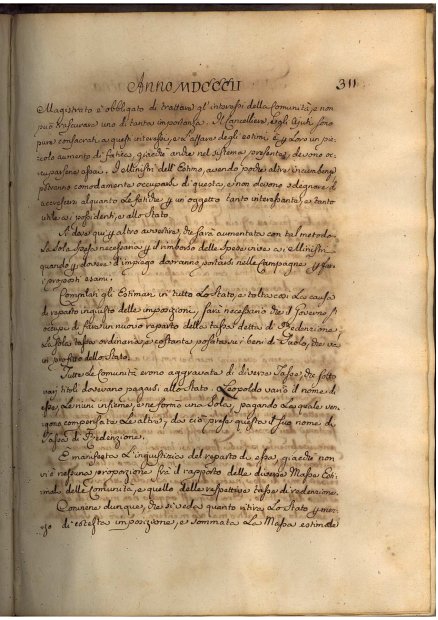 Anno MDCCCII
311
Magistrato è obbligato di trattare gl'interessi della Comunità, e non
può trascurare uno di tanta importanza. Il Cancelliere, e gli Ajuti sono
pure consacrati a questi interessi, e l'affare degli estimi è p loro un pic-
colo aumento di fatica, giacchè anche nel sistema presente, devono oc-
cuparsene assai. I Ministri dell'Estimo, avendo poche altre incumbenze
potranno comodamente occuparsi di questa, e non devono sdegnare di
accrescere alquanto le fatiche p un oggetto tanto interessante, e tanto
utile a' possidenti, e allo Stato.
A dove qui p altro avvertire, che sarà aumentata con tal metodo
la sola spesa necessaria p il rimborso delle Spese vive a' Ministri
quando p dovere d'impiego dovranno portarsi nelle Campagne p fare
i proposti esami.
Compilati gli Estimari in tutto lo Stato, e tolta così la causa
di reparto ingiusto delle imposizioni, sarà necessario che il Governo si
occupi di fare un nuovo reparto della tassa detta di Redenzione
la sola tassa ordinaria, e costante posata su i beni di suolo, che va
in profitto dello Stato.
Tutte le Comunità erono aggravate di diverse Tasse, che sotto
vari titoli dovevano pagarsi allo Stato. Leopoldo variò il nome di
esse, le riunì insieme, e ne formò una Sola, pagando la quale ven-
gono compensate le altre, da ciò prese questa il suo nome di
Tassa di Redenzione.
È manifesta l'ingiustizia del reparto di essa, giacchè non
vi è nessuna proporzione fra il rapporto delle diverse Masse Esti-
mali delle Comunità, e quello delle respettive tasse di redenzione.
Conviene dunque, che si veda quanto ritira lo Stato p mez-
zo di cotesta imposizione, e sommata la Massa estimale